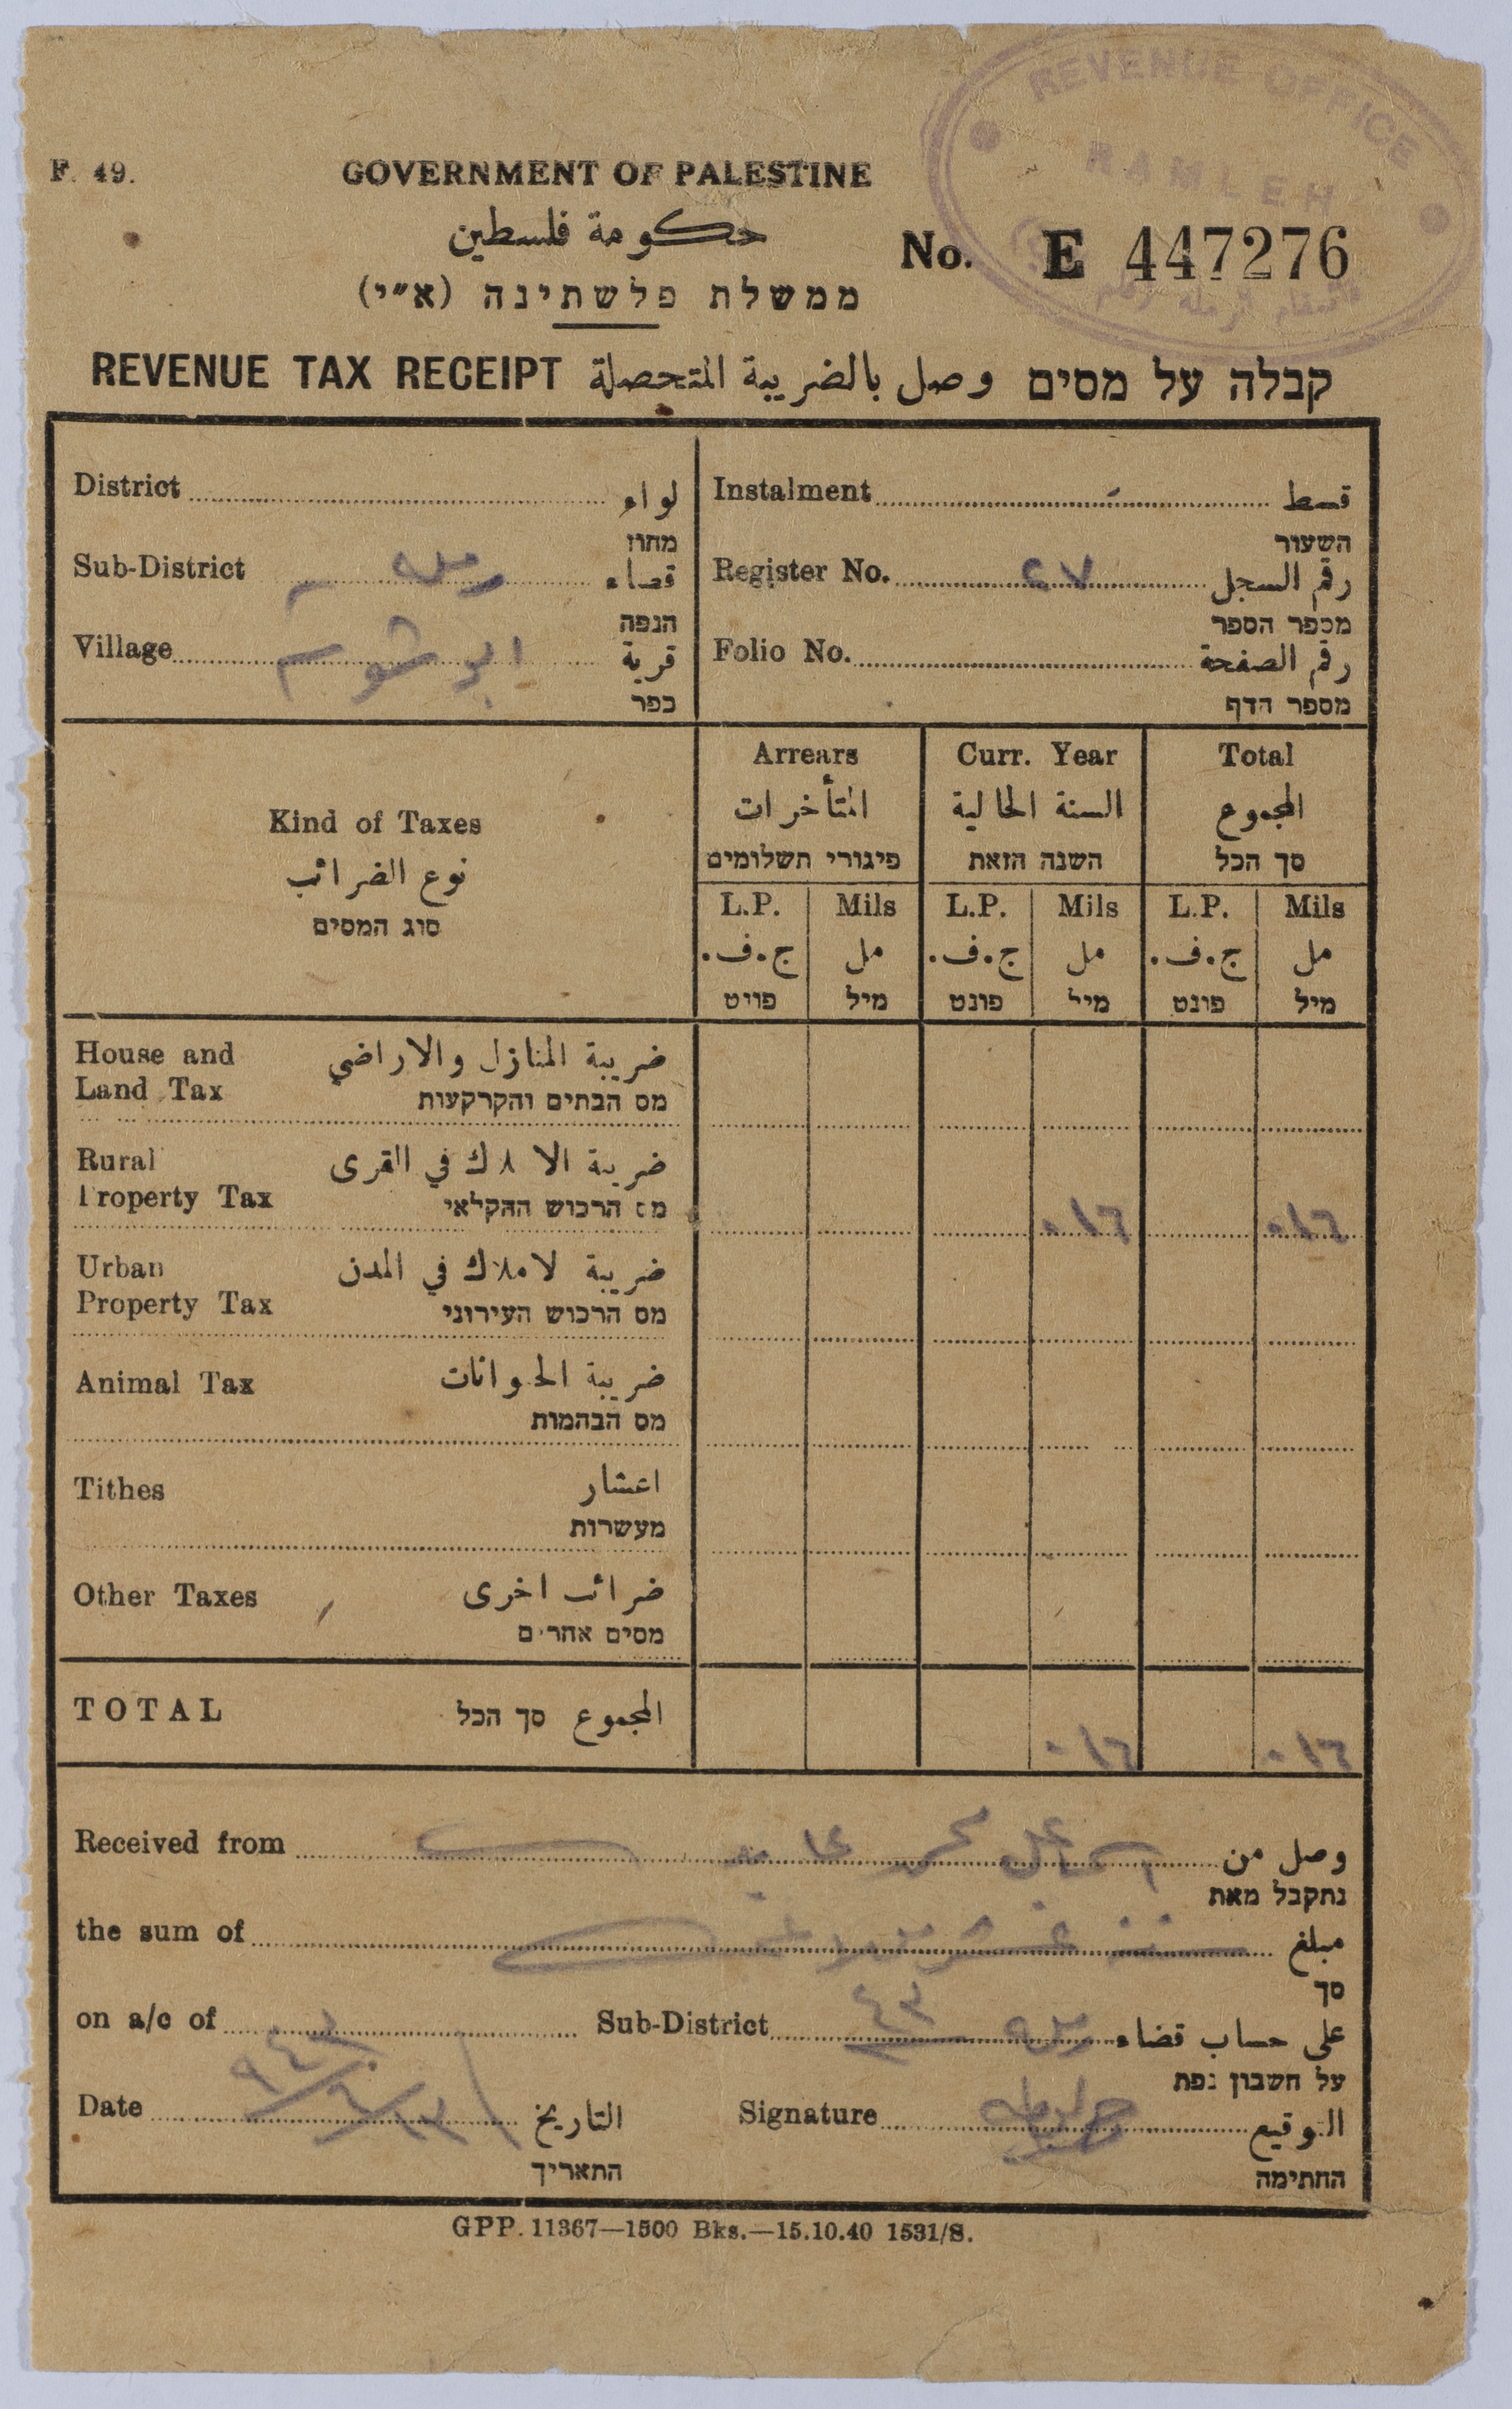 REVENUE OFFICE
RAMLEH
F. 49.
GOVERNMENT OF PALESTINE
حكومة فلسطين
ממשלת פלשתינה (א״י)
No. E 447276
REVENUE TAX RECEIPT وصل بالضريبة المتحصلة קבלה על מסים
District لواء
מחוז
Sub-District رملة قضاء
הנפה
Village ابو شوشة قرية
כפר
Instalment قسط
השעור
Register No. ٢٧ رقم السجل
מספר הספר
Folio No. رقم الصفحة
מספר הדף
Kind of Taxes
نوع الضرائب
סוג המסים
Arrears Curr. Year Total
المتأخرات السنة الحالية المجموع
פיגורי תשלומים השנה הזאת סך הכל
L.P. Mils L.P. Mils L.P. Mils
ج.ف. مل ج.ف. مل ج.ف. مل
פונט מיל פונט מיל פונט מיל
House and ضريبة المنازل والاراضي
Land Tax מס הבתים והקרקעות
Rural ضريبة الاملاك في القرى
Property Tax מס הרכוש החקלאי ٠١٦ ٠١٦
Urban ضريبة لاملاك في المدن
Property Tax מס הרכוש העירוני
Animal Tax ضريبة الحيوانات
מס הבהמות
Tithes اعشار
מעשרות
Other Taxes ضرائب اخرى
מסים אחרים
TOTAL المجموع סך הכל ٠١٦ ٠١٦
Received from محمد وصل من
נתקבל מאת
the sum of مبلغ
סך
on a/c of Sub-District رملة ٤٣ على حساب قضاء
על חשבון נפת
Date التاريخ
התאריך
Signature التوقيع
החתימה
GPP. 11367—1500 Bks.—15.10.40 1531/S.